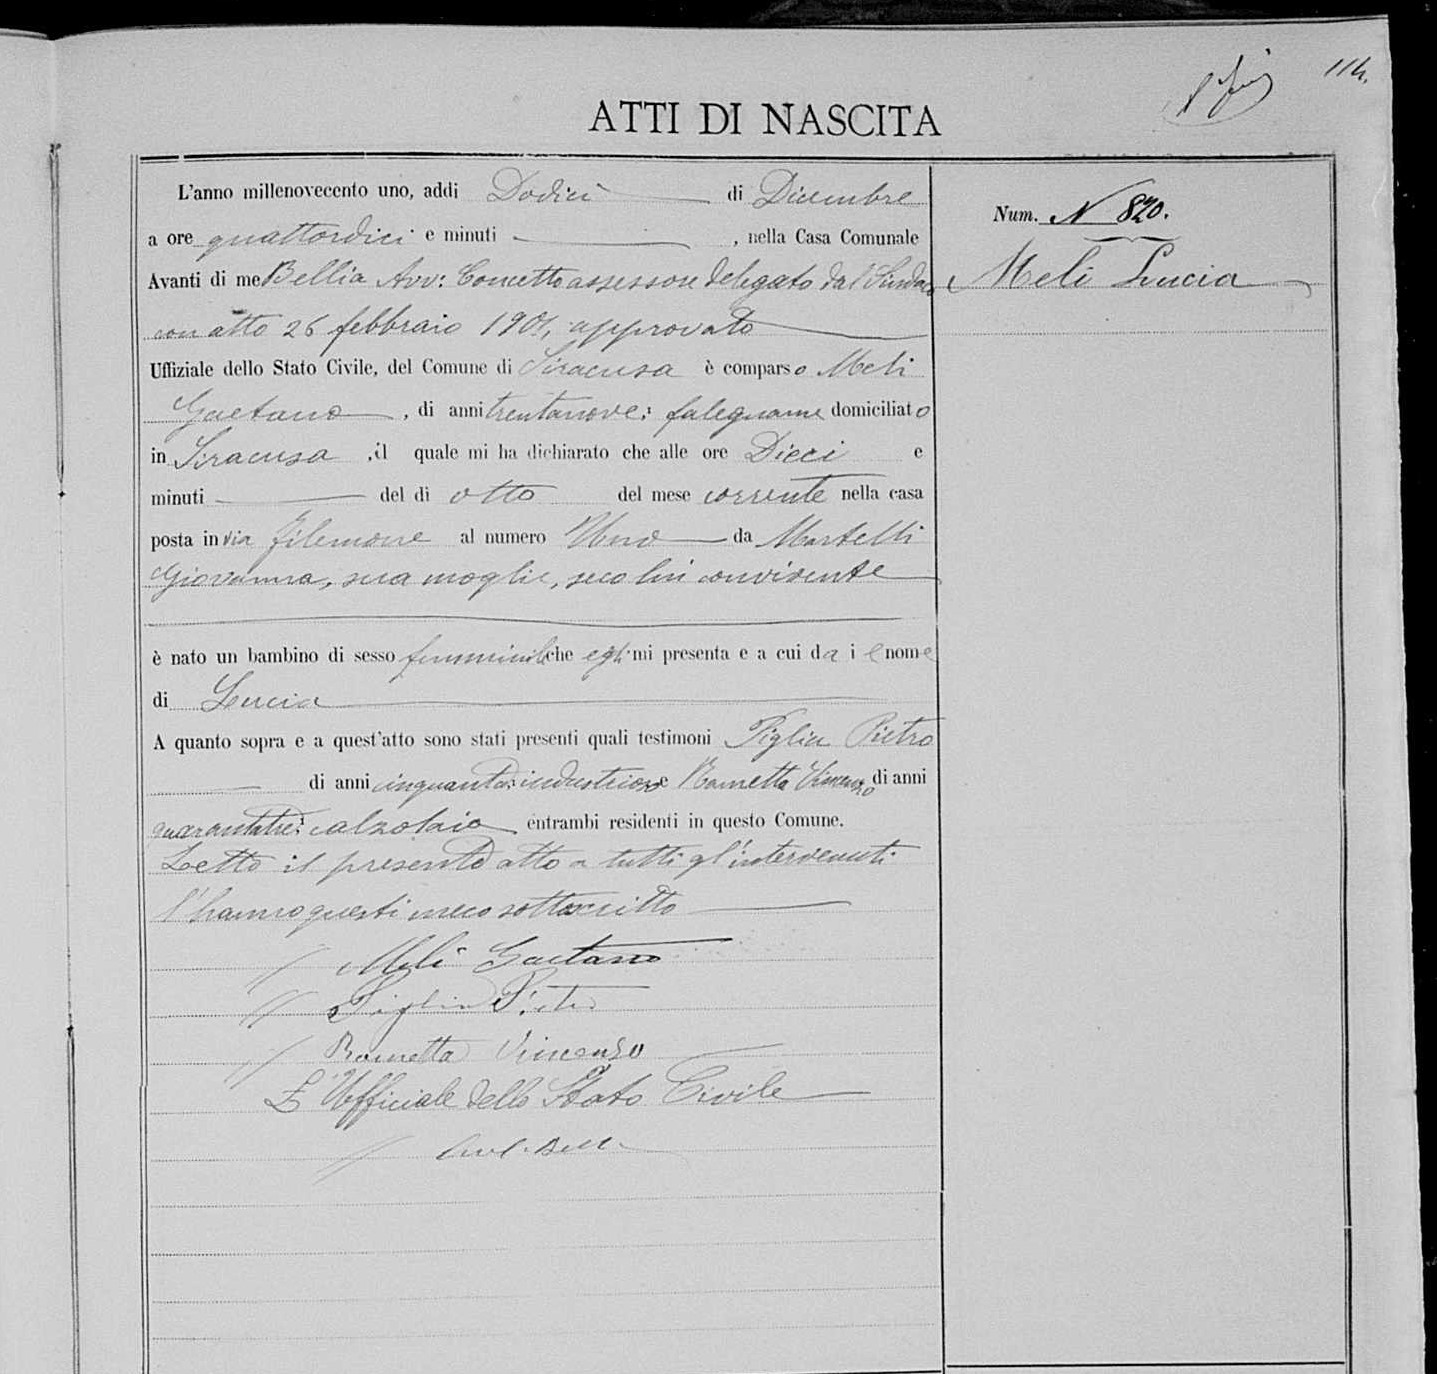 114.
ATTI DI NASCITA
Num. N 820.
Meli Lucia
L'anno millenovecento uno, addi Dodici di Dicembre
a ore quattordici e minuti , nella Casa Comunale
Avanti di me Bellia Avv: Concetto assessore delegato dal Sindaco
con atto 26 febbraio 1901, approvato
Uffiziale dello Stato Civile, del Comune di Siracusa è comparso Meli
Gaetano , di anni trentanove; falegname domiciliato
in Siracusa , il quale mi ha dichiarato che alle ore Dieci e
minuti del dì otto del mese corrente nella casa
posta in via Filemone al numero Uno da Martelli
Giovanna, sua moglie, seco lui convivente
è nato un bambino di sesso femminile che egli mi presenta e a cui da i l nome
di Lucia
A quanto sopra e a quest'atto sono stati presenti quali testimoni Piglia Pietro
di anni cinquanta, industrioso e Rametta Vincenzo di anni
quarantatre; calzolaio entrambi residenti in questo Comune.
Letto il presente atto a tutti gl'intervenuti
l'hanno questi meco sottoscritto
Meli Gaetano
Piglia Pietro
Rametta Vincenzo
L'Ufficiale dello Stato Civile